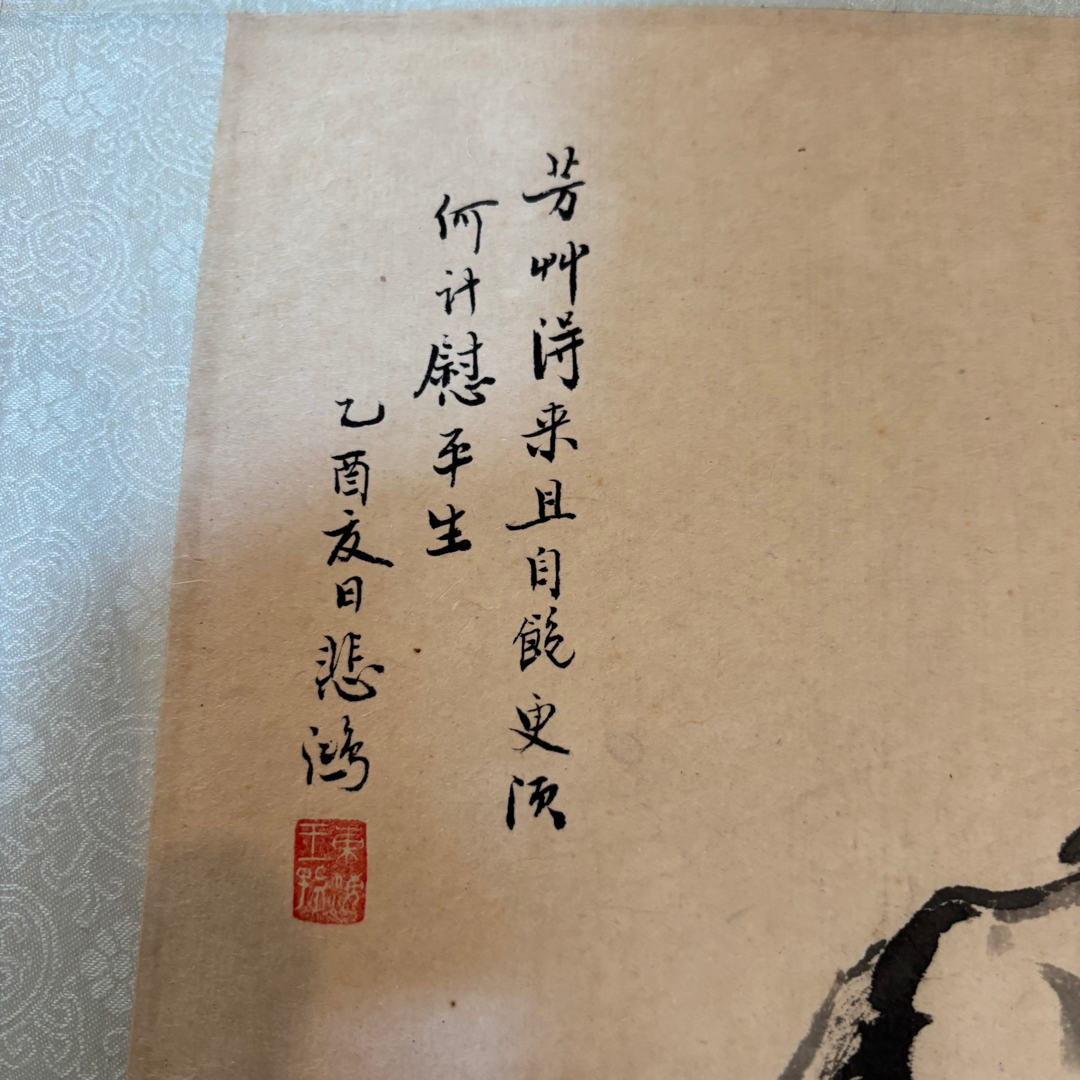 芳艸得来且自饱更须
何计慰平生
乙酉亥日悲鸿
东海王孙